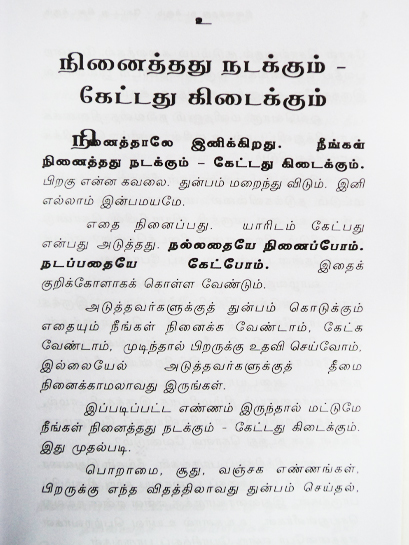 உ
நினைத்தது நடக்கும் -
கேட்டது கிடைக்கும்
நினைத்தாலே இனிக்கிறது. நீங்கள்
நினைத்தது நடக்கும் - கேட்டது கிடைக்கும்.
பிறகு என்ன கவலை. துன்பம் மறைந்து விடும். இனி
எல்லாம் இன்பமயமே.
எதை நினைப்பது. யாரிடம் கேட்பது
என்பது அடுத்தது. நல்லதையே நினைப்போம்.
நடப்பதையே கேட்போம். இதைக்
குறிக்கோளாகக் கொள்ள வேண்டும்.
அடுத்தவர்களுக்குத் துன்பம் கொடுக்கும்
எதையும் நீங்கள் நினைக்க வேண்டாம், கேட்க
வேண்டாம், முடிந்தால் பிறருக்கு உதவி செய்வோம்,
இல்லையேல் அடுத்தவர்களுக்குத் தீமை
நினைக்காமலாவது இருங்கள்.
இப்படிப்பட்ட எண்ணம் இருந்தால் மட்டுமே
நீங்கள் நினைத்தது நடக்கும் - கேட்டது கிடைக்கும்.
இது முதல்படி.
பொறாமை, சூது, வஞ்சக எண்ணங்கள்,
பிறருக்கு எந்த விதத்திலாவது துன்பம் செய்தல்,